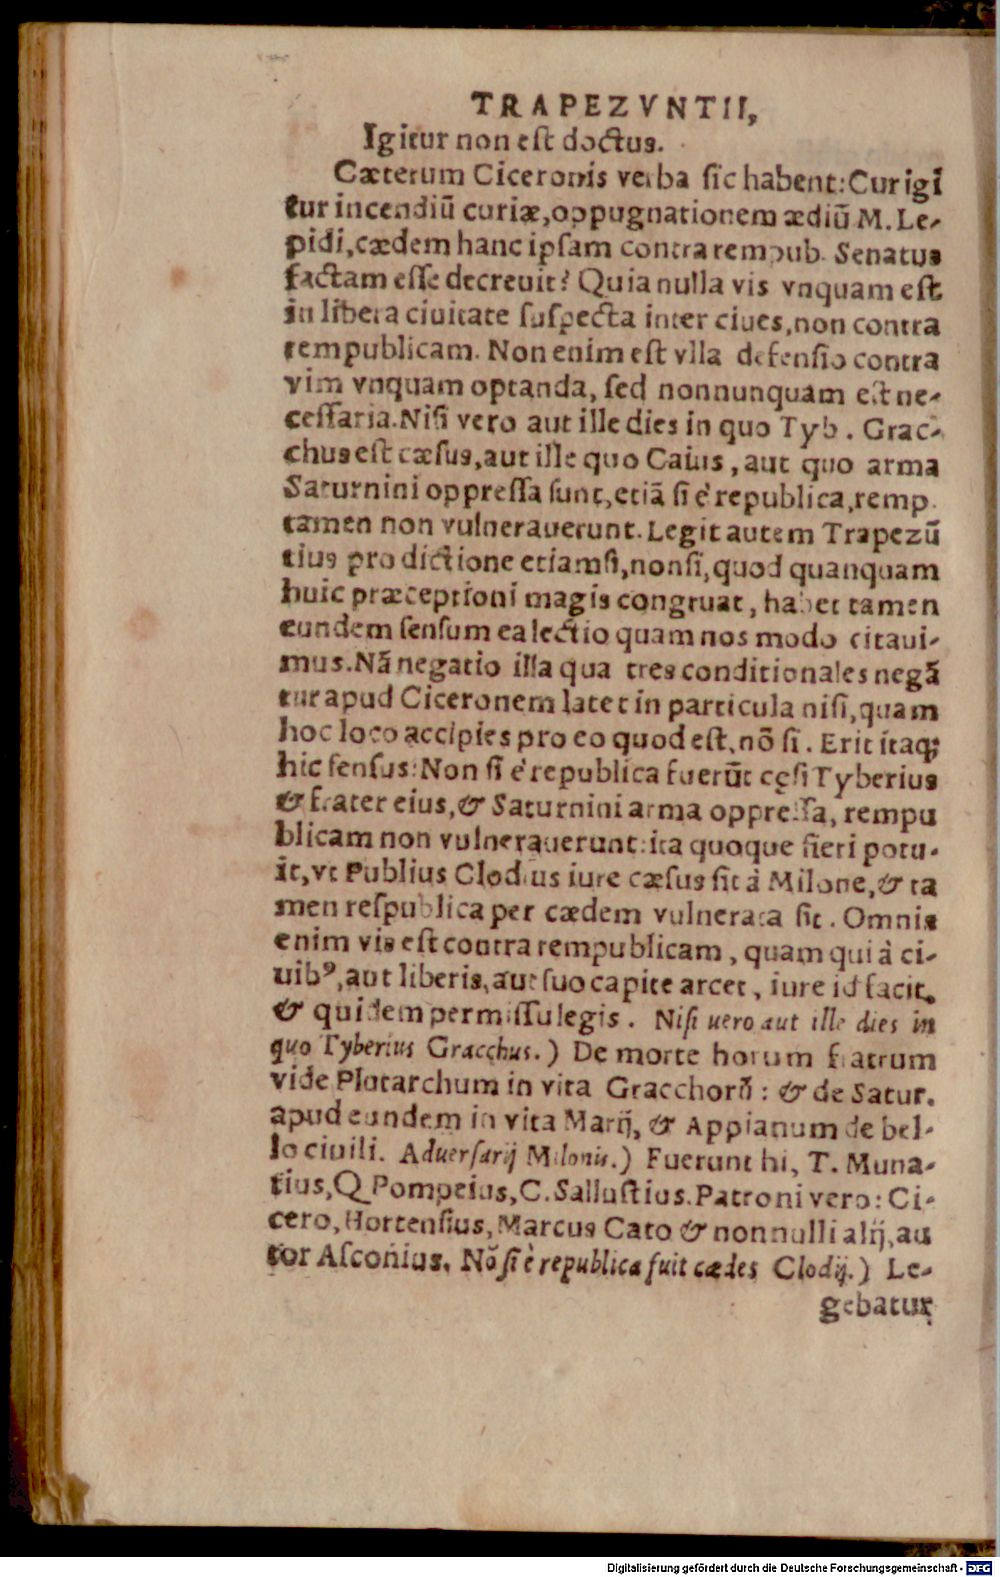 TRAPEZVNTII,
Igitur non est doctus.
Cæterum Ciceronis verba sic habent: Cur igĩ
tur incendiũ curiæ, oppugnationem ædiũ M. Le-
pidi, cædem hanc ipsam contra rempub. Senatus
factam esse decreuit? Quia nulla vis vnquam est
in libera ciuitate suspecta inter ciues, non contra
rempublicam. Non enim est vlla defensio contra
vim vnquam optanda, sed nonnunquam est ne-
cessaria. Nisi vero aut ille dies in quo Tyb. Grac-
chus est cæsus, aut ille quo Caius, aut quo arma
Saturnini oppressa sunt, etiã si è republica, remp.
tamen non vulnerauerunt. Legit autem Trapezũ
tius pro dictione etiamsi, non si, quod quanquam
huic præceptioni magis congruat, habet tamen
eundem sensum ea lectio quam nos modo citaui-
mus. Nã negatio illa qua tres conditionales negã
tur apud Ciceronem latet in particula nisi, quam
hoc loco accipies pro eo quod est, nõ si. Erit itaq;
hic sensus: Non si è republica fuerũt cęsi Tyberius
& frater eius, & Saturnini arma oppressa, rempu
blicam non vulnerauerunt: ita quoque fieri potu-
it, vt Publius Clodius iure cæsus sit à Milone, & ta
men respublica per cædem vulnerata sit. Omnis
enim vis est contra rempublicam, quam qui à ci-
uibꝰ, aut liberis, aut suo capite arcet, iure id facit,
& quidem permissu legis. Nisi uero aut ille dies in
quo Tyberius Gracchus.) De morte horum fratrum
vide Plutarchum in vita Gracchorũ: & de Satur.
apud eundem in vita Marij, & Appianum de bel-
lo ciuili. Aduersarij Milonis.) Fuerunt hi, T. Muna-
tius, Q Pompeius, C. Sallustius. Patroni vero: Ci-
cero, Hortensius, Marcus Cato & nonnulli alij, au
tor Asconius. Nõ si è republica fuit cædes Clodij.) Le-
gebatur
Digitalisierung gefördert durch die Deutsche Forschungsgemeinschaft - DFG